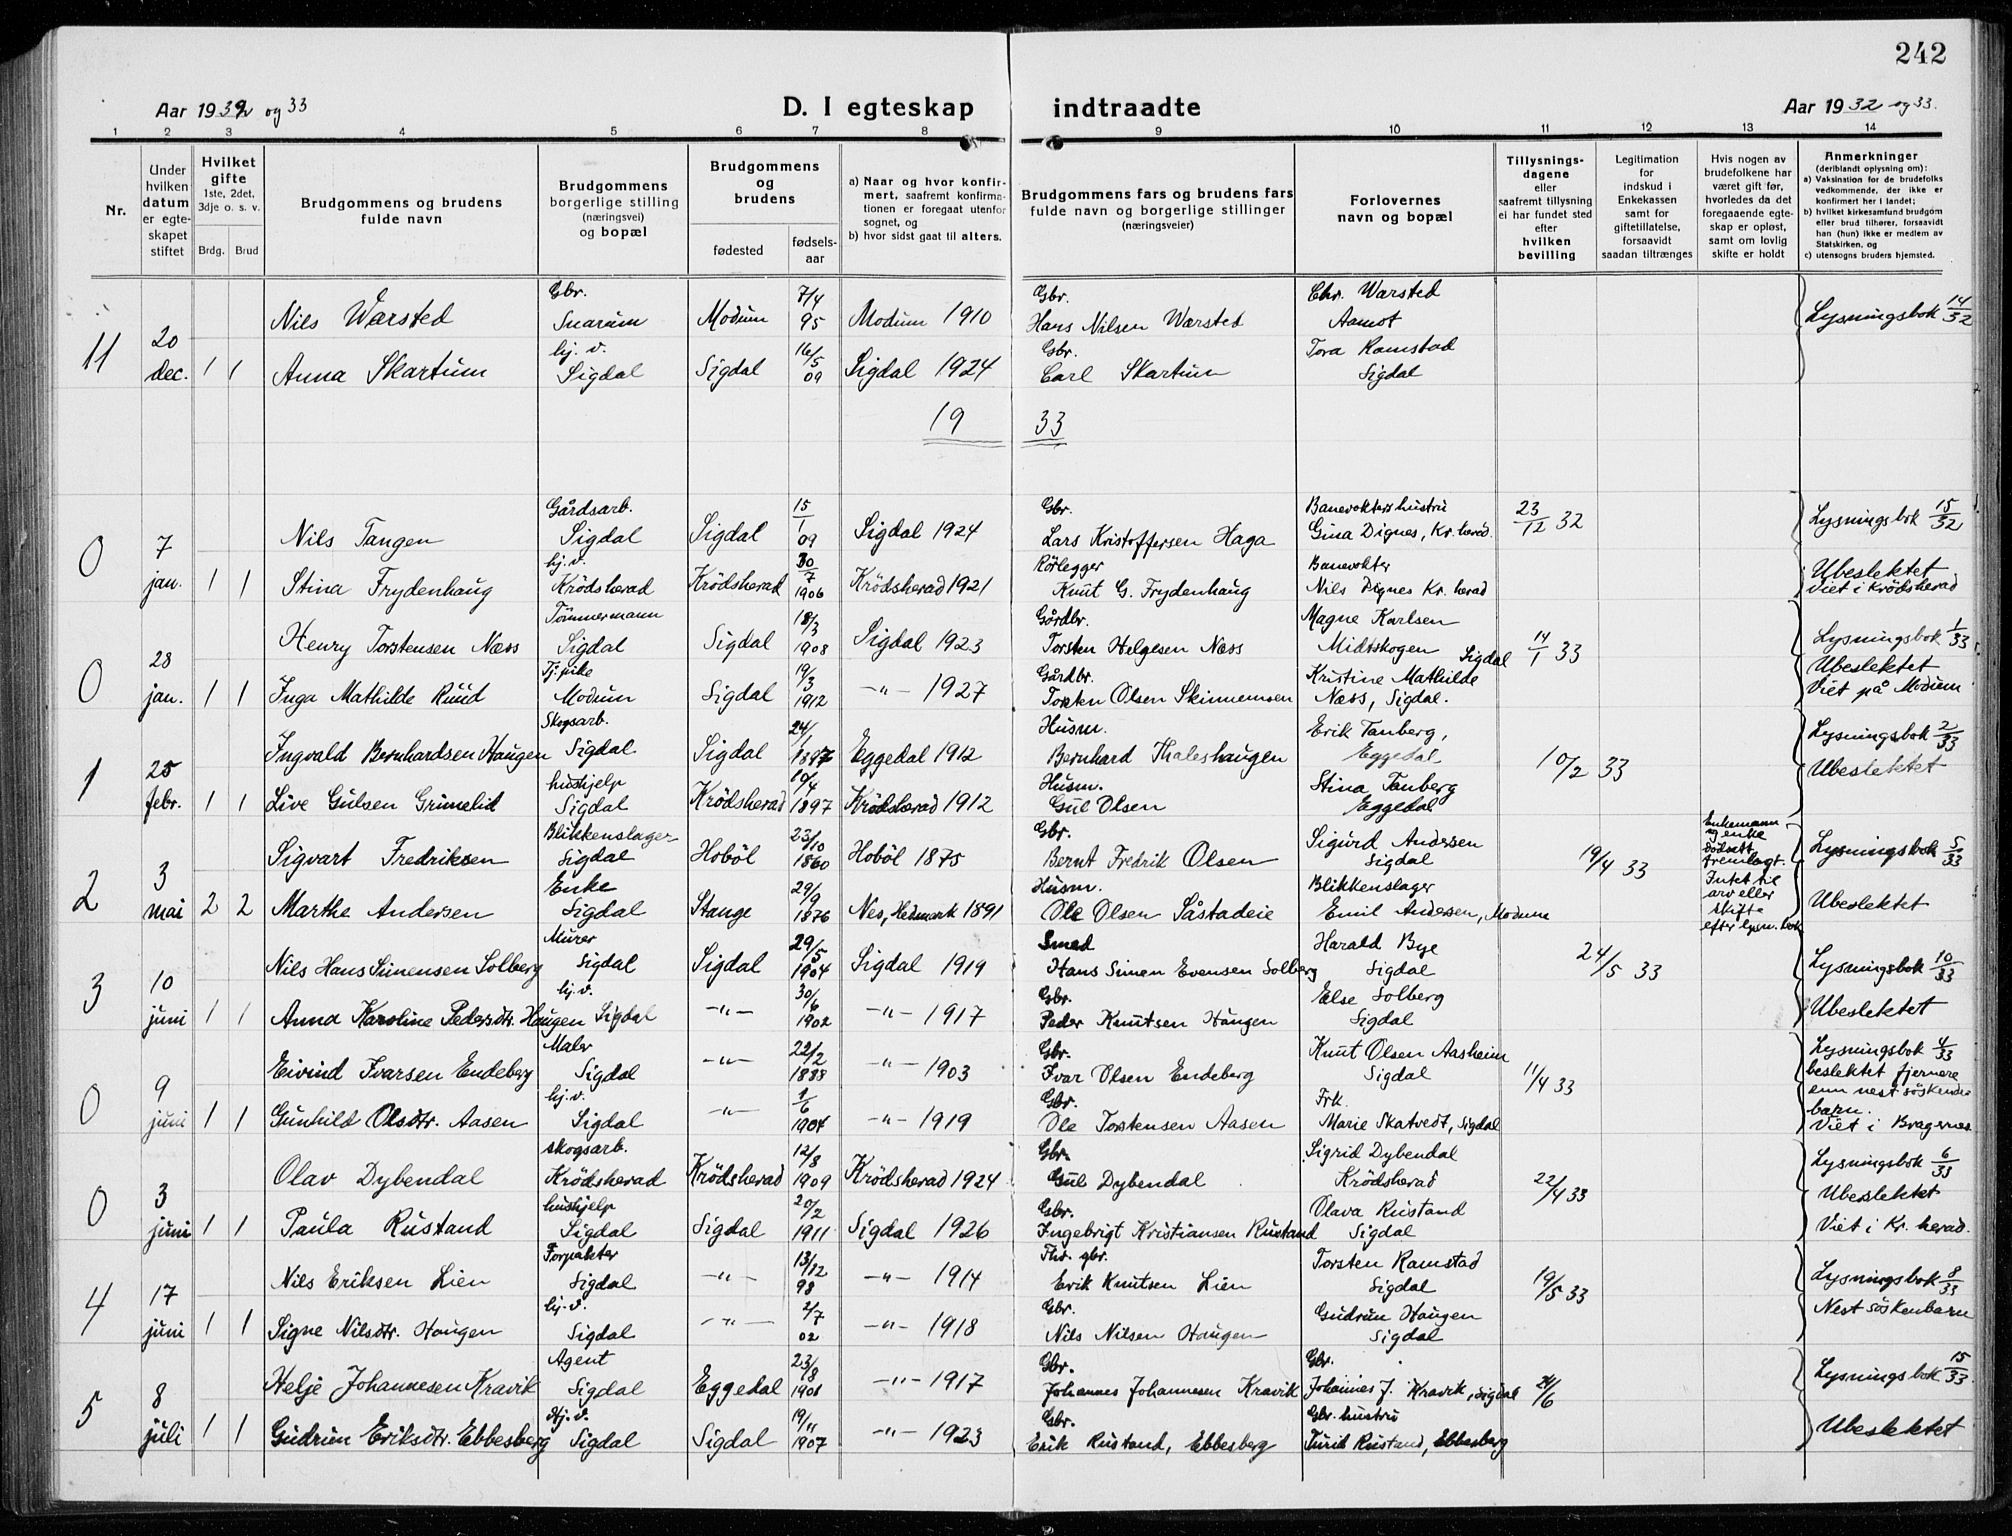 242
Aar 1932 og 33
D. I egteskap indtraadte
Aar 1932 og 33.
1 2 3 4 5 6 7 8 9 10 11 12 13 14
Nr.
Under hvilken datum er egteskapet stiftet
Hvilket gifte
1ste, 2det, 3dje o. s. v.
Brdg. Brud
Brudgommens og brudens fulde navn
Brudgommens borgerlige stilling (næringsvei) og bopæl
Brudgommens og brudens
fødested
fødsels-aar
a) Naar og hvor konfirmert, saafremt konfirmationen er foregaat utenfor sognet, og
b) hvor sidst gaat til alters.
Brudgommens fars og brudens fars fulde navn og borgerlige stillinger (næringsveier)
Forlovernes navn og bopæl
Tillysningsdagene eller saafremt tillysning ei har fundet sted efter hvilken bevilling
Legitimation for indskud i Enkekassen samt for giftetillatelse, forsaavidt saadan tiltrænges
Hvis nogen av brudefolkene har været gift før, hvorledes da det foregaaende egteskap er opløst, samt om lovlig skifte er holdt
Anmerkninger
(deriblandt oplysning om):
a) Vaksination for de brudefolks vedkommende, der ikke er konfirmert her i landet;
b) hvilket kirkesamfund brudgom eller brud tilhører, forsaavidt han (hun) ikke er medlem av Statskirken, og
c) utensogns bruders hjemsted.
Gbr. 7/4 Gbr. Chr. Warsted
Nils Warsted Snarum Modum 95 Modum 1910 Hans Nilsen Warsted Aamot Lysningsbok 14/32
20 hj. v. 16/5 Gbr. Tora Ramstad
11 dec. 1 1 Anna Skartum Sigdal Sigdal 09 Sigdal 1924 Carl Skartum Sigdal
19 33
Gårdsarb. 15/1 Gbr. Banevokters hustru 23/12 32 Lysningsbok 15/32
0 7 Nils Tangen Sigdal Sigdal 09 Sigdal 1924 Lars Kristoffersen Haga Gina Dignes, Kr. herad.
hj. v. 30/7 Rörlegger Banevokter Ubeslektet
jan. 1 1 Stina Frydenhaug Krödsherad Krödsherad 1906 Krödsherad 1921 Knut G. Frydenhaug Nils Dignes Kr. herad Viet i Krödsherad
Tömmermann 18/3 Gårdbr. Magne Karlsen
Henry Torstensen Næss Sigdal Sigdal 1908 Sigdal 1923 Torsten Helgesen Næss Midtskogen Sigdal 14/1 33 Lysningsbok 1/33
0 28 Tj. pike 19/3 Gårdbr. Kristine Mathilde Ubeslektet
jan. 1 1 Inga Mathilde Ruud Modum Sigdal 1912 -"- 1927 Torsten Olsen Skinnemoen Næss, Sigdal. Viet på Modum
Skogsarb. 24/1 Husm. Erik Tanberg, Lysningsbok 2/33
1 25 Ingvald Bernhardsen Haugen Sigdal Sigdal 1897 Eggedal 1912 Bernhard Thaleshaugen Eggedal 10/2 33
hushjelp 10/4 Husm. Stina Tanberg Ubeslektet
febr. 1 1 Live Gulsen Grimelid Sigdal Krödsherad 1897 Krödsherad 1912 Gul Olsen Eggedal
Blikkenslager 23/10 Gbr. Sigurd Andersen
2 3 Sigvart Fredriksen Sigdal Hoböl 1860 Hoböl 1875 Bernt Fredrik Olsen Sigdal 19/4 33 Enkemann og enke dödsatt. fremlagt. Intet til arv eller skifte efter lysn. bok Lysningsbok 5/33
Enke 29/9 Husm. Blikkenslager
mai 2 2 Marthe Andersen Sigdal Stange 1876 Nes, Hedmark 1891 Ole Olsen Såstadeie Emil Andersen, Modum Ubeslektet
Murer 29/5 Smed Harald Bye
3 10 Nils Hans Simensen Solberg Sigdal Sigdal 1904 Sigdal 1919 Hans Simen Evensen Solberg Sigdal 24/5 33 Lysningsbok 10/33
hj. v. 30/6 Gbr. Else Solberg
juni 1 1 Anna Karoline Pedersdtr. Haugen Sigdal -"- 1902 -"- 1917 Peder Knutsen Haugen Sigdal Ubeslektet
Maler 22/2 Gbr. Knut Olsen Aasheim Lysningsbok 4/33
0 9 Eivind Ivarsen Endeberg Sigdal -"- 1888 -"- 1903 Ivar Olsen Endeberg Sigdal 11/4 33 beslektet fjernere enn nest söskende-
hj. v. 1/6 Gbr. Frk. barn.
juni 1 1 Gunhild Olsdtr. Aasen Sigdal -"- 1904 -"- 1919 Ole Torstensen Aasen Marie Skatvedt, Sigdal Viet i Bragernes
skogsarb. 12/8 Gbr. Sigrid Dybendal Lysningsbok 6/33
0 3 Olav Dybendal Krödsherad Krödsherad 1909 Krödsherad 1924 Gul Dybendal Krödsherad 22/4 33
hushjelp 20/2 Gbr. Olava Rustand Ubeslektet
juni 1 1 Paula Rustand Sigdal Sigdal 1911 Sigdal 1926 Ingebrigt Kristiansen Rustand Sigdal Viet i Kr. herad.
Forpakter 13/12 Fhv. gbr. Torsten Ramstad
4 17 Nils Eriksen Lien Sigdal -"- 98 -"- 1914 Erik Knutsen Lien Sigdal 19/5 33 Lysningsbok 8/33
hj. v. 2/7 Gbr. Gudrun Haugen Nest söskenbarn
juni 1 1 Signe Nilsdtr. Haugen Sigdal -"- 02 -"- 1918 Nils Nilsen Haugen Sigdal
Agent 23/8 Gbr. Gbr.
5 8 Helje Johannesen Kravik Sigdal Eggedal 1901 -"- 1917 Johannes Johannesen Kravik Johannes J. Kravik, Sigdal 24/6 Lysningsbok 15/33
Hj. v. 19/11 Gbr. Gbr. hustru
juli 1 1 Gudrun Eriksdtr. Ebbesberg Sigdal Sigdal 1907 -"- 1923 Erik Rustand, Ebbesberg Turid Rustand, Ebbesberg Ubeslektet